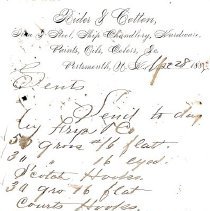 Rider & Cotton,
Iron & Steel, Ship Chandlery, Hardware,
Paints, Oils, Colors, &c
Portsmouth, N. H. 28 188
Gents
Send to day
by Exp Co
5 gross #6 flat.
3 " " #6 eyed.
Scotch Hooks.
3 gro #6 flat
Courts Hooks.